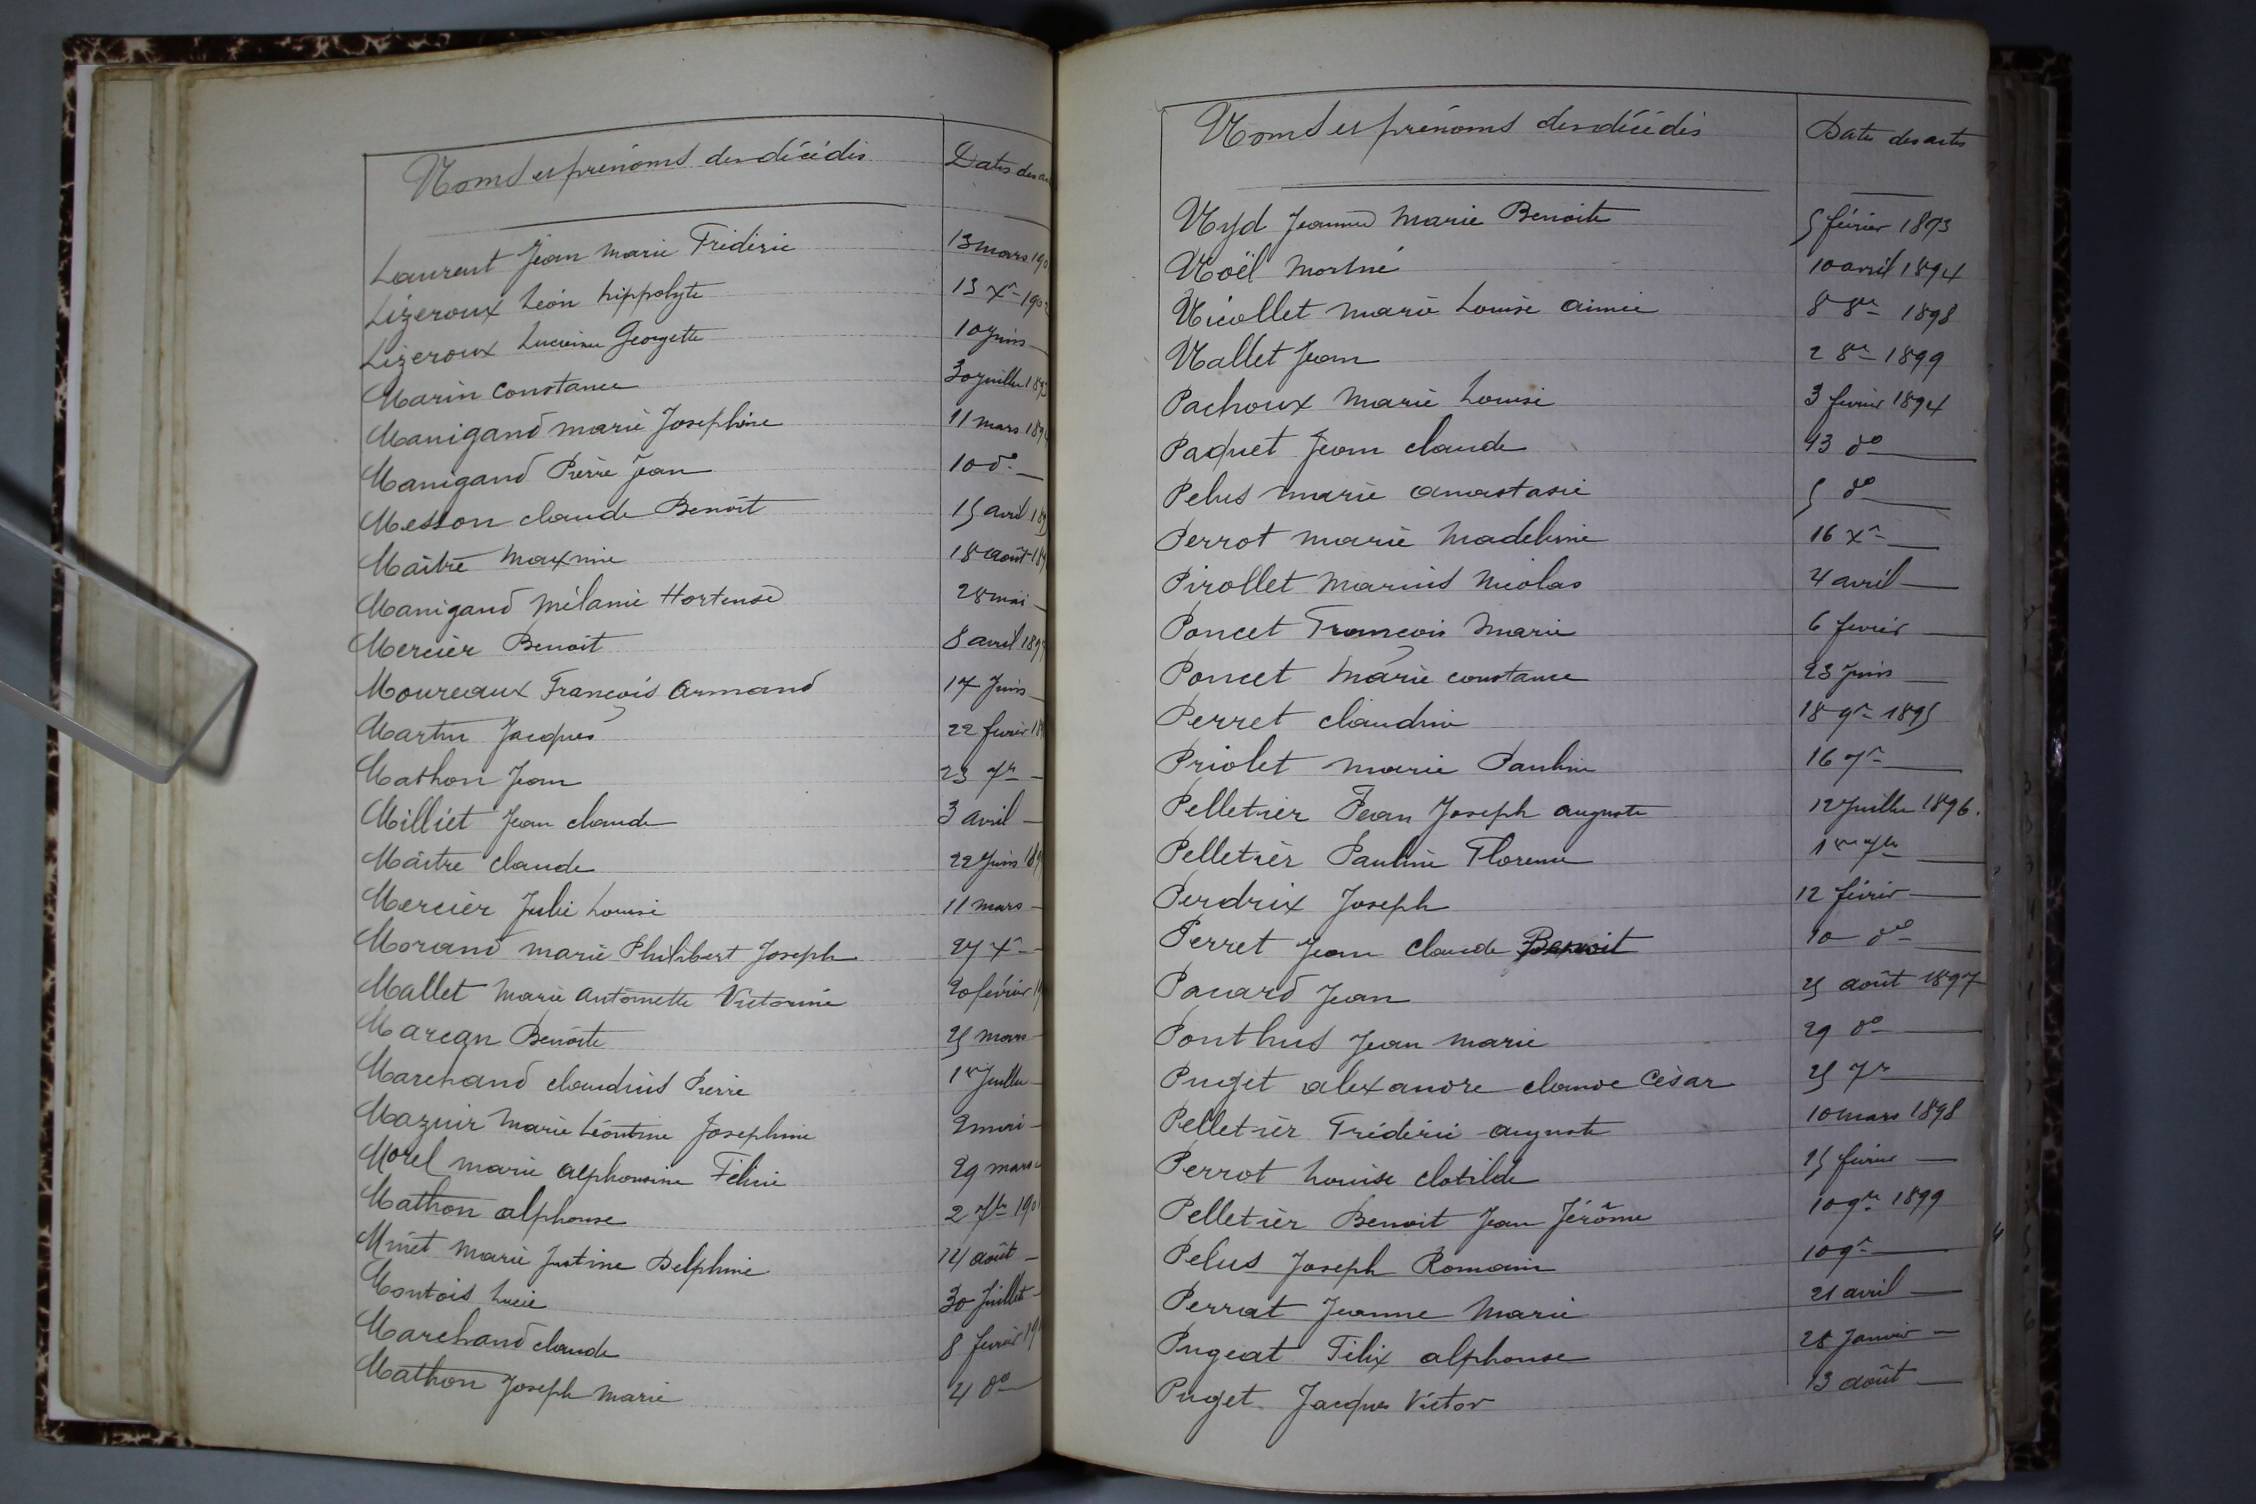 Noms et prénoms des décédés Dates des
Laurent Jean Marie Frédéric 13 mars
Lizeroux Léon hippolyte 13 Xre
Lizeroux Lucienne Georgette 10 juin —
Marin Constance 30 juillet
Manigand Marie Joséphine 11 mars
Manigand Pierre Jean 10 do —
Messon Claude Benoît 15 avril
Maître Maxime 18 août
Manigand Mélanie Hortense 28 mai —
Mercier Benoit 8 avril
Moureaux François Armand 17 juin —
Martin Jacques 22 février
Mathon Jean 23 7re —
Milliet Jean Claude 3 avril —
Maître Claude 22 juin
Mercier Julie Louise 11 mars —
Morand Marie Philibert Joseph 27 Xre —
Mallet Marie Antoinette Victorine 20 février
Marean Benoîte 25 mars —
Marchand Claudius Pierre 1er juillet —
Mazuir Marie Léontine Joséphine 2 mai —
Morel Marie Alphonsine Félicie 29 mars
Mathon Alphonse 2 7bre
Minet Marie Justine Delphine 14 août —
Montois Lucie 30 juillet —
Marchand Claude 8 février
Mathon Joseph Marie 4 do —
Noms et prénoms des décédés Dates des actes
Nyd Jeanne Marie Benoite 5 février 1893
Noël Mortné 10 avril 1894
Nicollet Marie Louise Aimée 8 8re 1898
Nallet Jean 2 8re 1899
Pachoux Marie Louise 3 février 1894
Paquet Jean Claude 13 do —
Pelus Marie Anastasie 5 do —
Perrot Marie Madeleine 16 Xre —
Pirollet Marius Nicolas 4 avril —
Poncet François Marie 6 février —
Poncet Marie Constance 23 juin —
Perret Claudine 18 9re 1895
Priolet Marie Pauline 16 7re —
Pelletier Jean Joseph Auguste 12 juillet 1896.
Pelletier Pauline Florence 1er 7bre —
Perdrix Joseph 12 février —
Perret Jean Claude Benoit 10 do —
Panard Jean 25 août 1897
Ponthus Jean Marie 29 do —
Puget Alexandre Claude César 25 7re —
Pelletier Frédéric Auguste 10 mars 1898
Perrot Louise Clotilde 15 février —
Pelletier Benoit Jean Jérôme 10 9re 1899
Pelus Joseph Romain 10 9re —
Perrat Jeanne Marie 21 avril —
Pugeat Félix Alphonse 28 janvier —
Puget Jacques Victor 13 août —